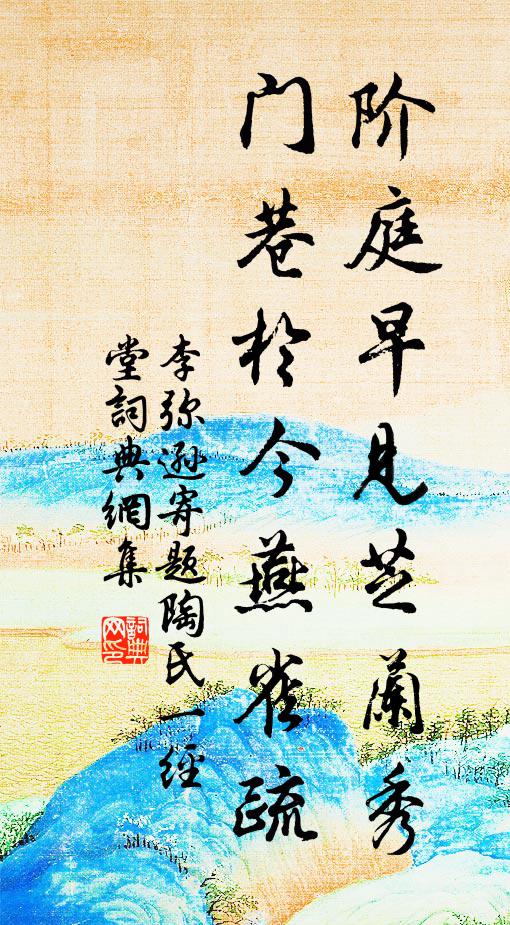 阶庭早见芝兰秀
门巷於今燕雀疏
李弥逊寄题陶氏一經
堂詞典網集
詞典
网印